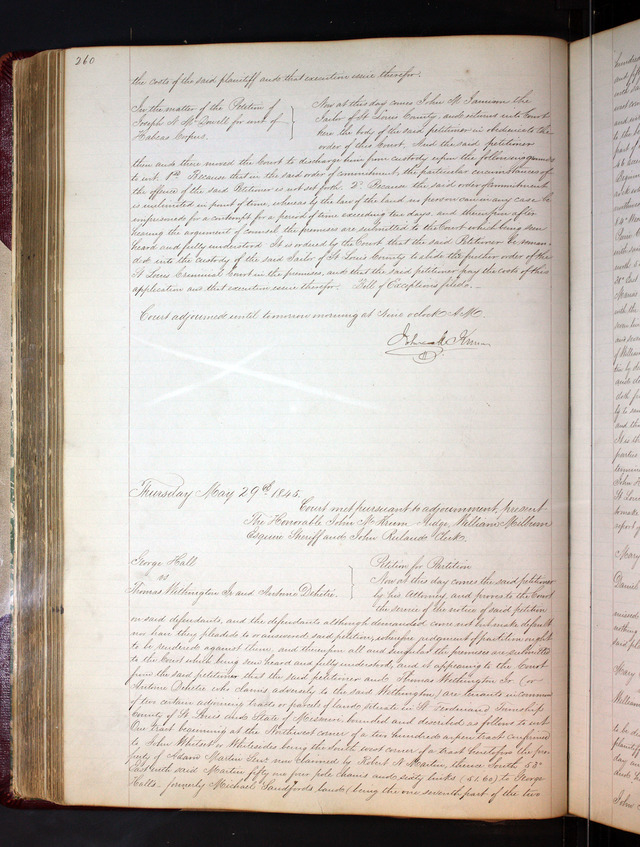 260
the costs of the said plaintiff and that execution issue therefor.
In the matter of the Petition of
Joseph N. McDowell for writ of
Habeas Corpus.
Now at this day comes John M. Jameson the
Jailor of St Louis County, and returns into Court
here the body of the said petitioner in obedience to the
order of this Court. And the said petitioner
then and there moved the Court to discharge him from custody upon the following grounds
to wit. 1st Because that in the said order of commitment, the particular circumstances of
the offence of the said Petitioner is not set forth. 2d Because the said order of commitment
is unlimited in point of time, whereas by the law of the land no person can in any case be
imprisoned for a contempt for a period of time exceeding ten days, and thereupon after
hearing the argument of counsel the premises are submitted to the Court which being seen
heard and fully understood It is ordered by the Court that the said Petitioner be reman-
ded into the custody of the said Jailor of St Louis County to abide the further order of the
St Louis Criminal Court in the premises, and that the said petitioner pay the costs of this
application and that execution issue therefor. Bill of Exceptions filed.
Court adjourned until tomorrow morning at Nine o'clock A.M.
John M Krum
Thursday May 29th 1845.
Court met pursuant to adjournment, present
The Honorable John M Krum Judge, William Milburn
Esquire Sheriff and John Ruland Clerk.
George Hall
vs
Thomas Withington Jr and Antoine Dehetre.
Petition for Partition
Now at this day comes the said petitioner
by his Attorney, and proves to the Court
the service of the notice of said petition
on said defendants, and the defendants although demanded come not but make default
nor have they pleaded to or answered said petition, whereupon judgment of partition ought
to be rendered against them, and thereupon all and singular the premises are submitted
to the Court which being seen heard and fully understood, and it appearing to the Court
from the said petitioner that the said petitioner and Thomas Withington Jr. (or
Antoine Dehetre who claims adversely to the said Withington) are tenants in common
of two certain adjoining tracts or parcels of land, situate in St Ferdinand Township
County of St Louis and State of Missouri, bounded and described as follows to wit.
One tract beginning at the Northwest corner of a ten hundred arpen tract confirmed
to John Whitset or Whitesides being the south west corner of a tract heretofore the pro-
perty of Adam Martin Senr now claimed by Robert N Martin, thence South 53°
East with said Martin fifty one four pole chains and sixty links (51.60) to George
Halls, formerly Michael Sandfords land (being the one seventh part of the two